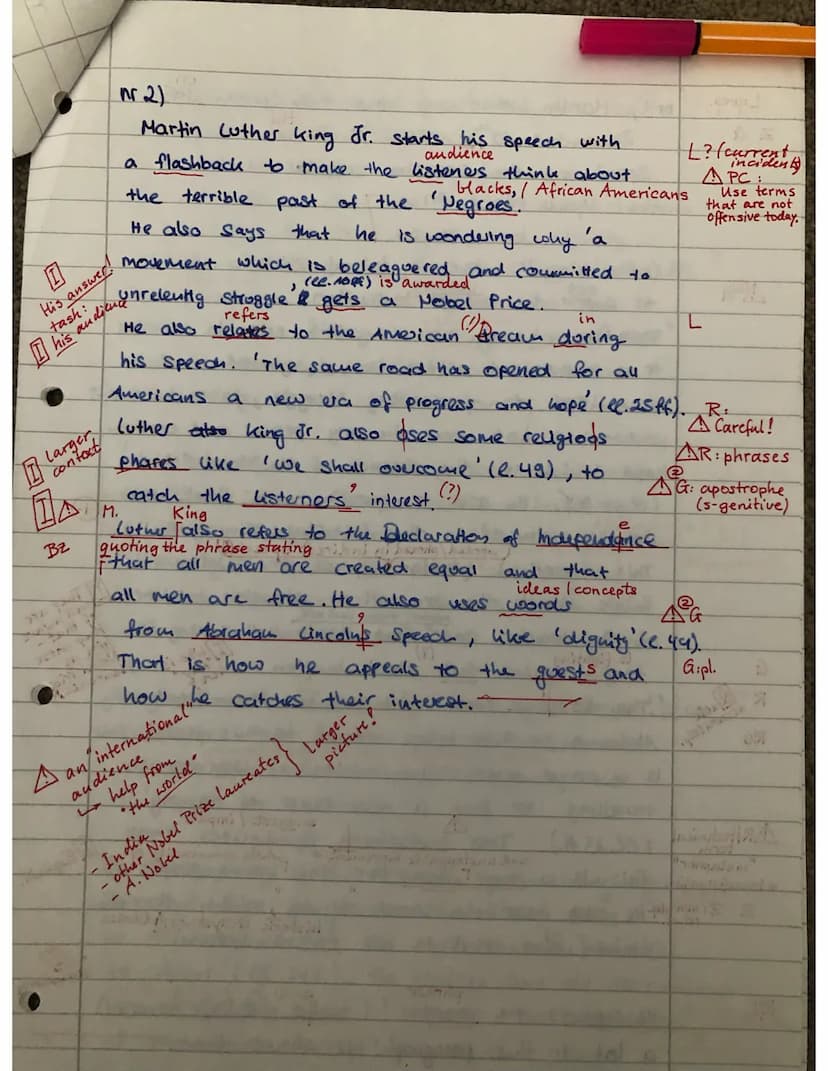 nr 2)
Martin Luther King Jr. starts his speech with
audience
L? (current incidents)
a flashback to make the listeners think about
⚠ PC: Use terms that are not offensive today.
blacks, / African Americans
the terrible past of the 'Negroes.
He also says that he is wondering why 'a
movement which is beleaguered and committed to
I His answer!
, (ll. 10ff) is awarded
unrelentig struggle & gets a Nobel Price.
task:
I his audience
refers
(!)
in
L
He also relates to the American dream doring
his speech. 'The same road has opened for all
Americans a new era of progress and hope' (ll.25ff).
R: ⚠ Careful!
Luther also King Jr. also oses some religiods
⚠R: phrases
I larger context
phares like 'we shall overcome' (l.49), to
② ⚠ G: apostrophe (s-genitive)
I ⚠
catch the listeners' interest. (?)
M. King
e
Luther also refers to the Declaration of Independance
Bz
quoting the phrase stating
that all men are created equal and that
ideas / concepts
all men are free. He also uses words
② ⚠G
from Abraham Lincoln's speech, like 'dignity' (l.44).
G:pl.
That is how he appeals to the guests and
how he catches their interest.
⚠ an "international" audience
→ help from "the world"
- India
- other Nobel Prize laureates
- A. Nobel
} larger picture!